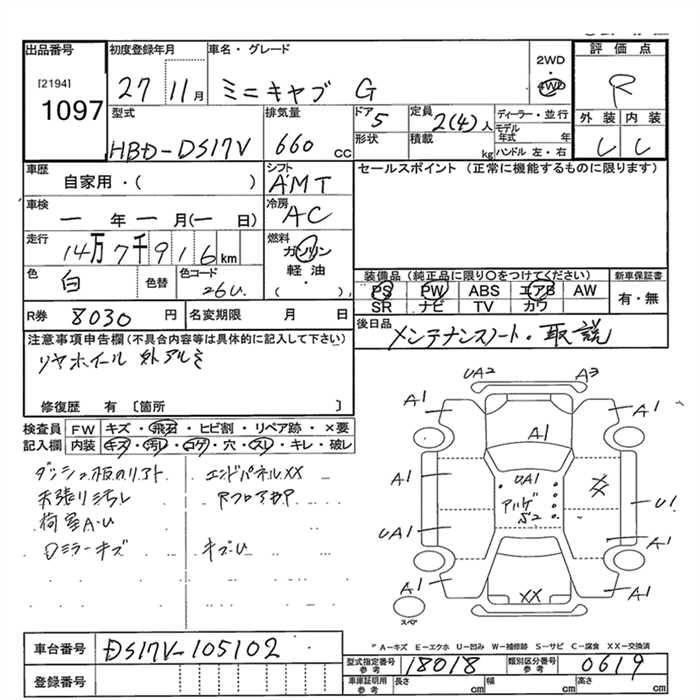 出品番号 初度登録年月 車名・グレード 2WD ・ 4WD 評価点
[2194]
1097 27 11月 ミニキャブ G R
型式 排気量 ドア 定員 ディーラー・並行 外装 内装
HBD-DS17V 660 CC 5 2(4)人 モデル年式 年
形状 積載 kg ハンドル 左・右
車歴 シフト セールスポイント (正常に機能するものに限ります)
自家用・( ) AMT
車検 冷房
一年一月(一日) AC
走行 燃料
14万7千916km ガソリン
軽油・
( )
色 色替 色コード 装備品 (純正品に限り○をつけてください) 新車保証書
白 26U. PS PW ABS エアB AW 有・無
SR ナビ TV カワ
R券 8030 円 名変期限 月 日 後日品
メンテナンスノート・取説
注意事項申告欄(不具合内容等は具体的に記入して下さい)
リヤホイール 外アルミ
修復歴 有 〔箇所 〕
検査員 FW キズ・飛石・ヒビ割・リペア跡・×要
記入欄 内装 キズ・汚れ・コゲ・穴・スレ・キレ・破レ
エンドパネルXX
天張り汚レ
荷室A・U
Dミラーキズ キズU
UA2 A3
A1 A1
A1
A1 UA1 U1
UA1 A1
A1 XX A1
スペア
A-キズ E-エクボ U-凹み W-補修跡 S-サビ C-腐食 XX-交換済
車台番号 DS17V-105102
登録番号
型式指定番号 参考 18018 類別区分番号 参考 0619
車庫証明用 参考 長さ cm 幅 cm 高さ cm